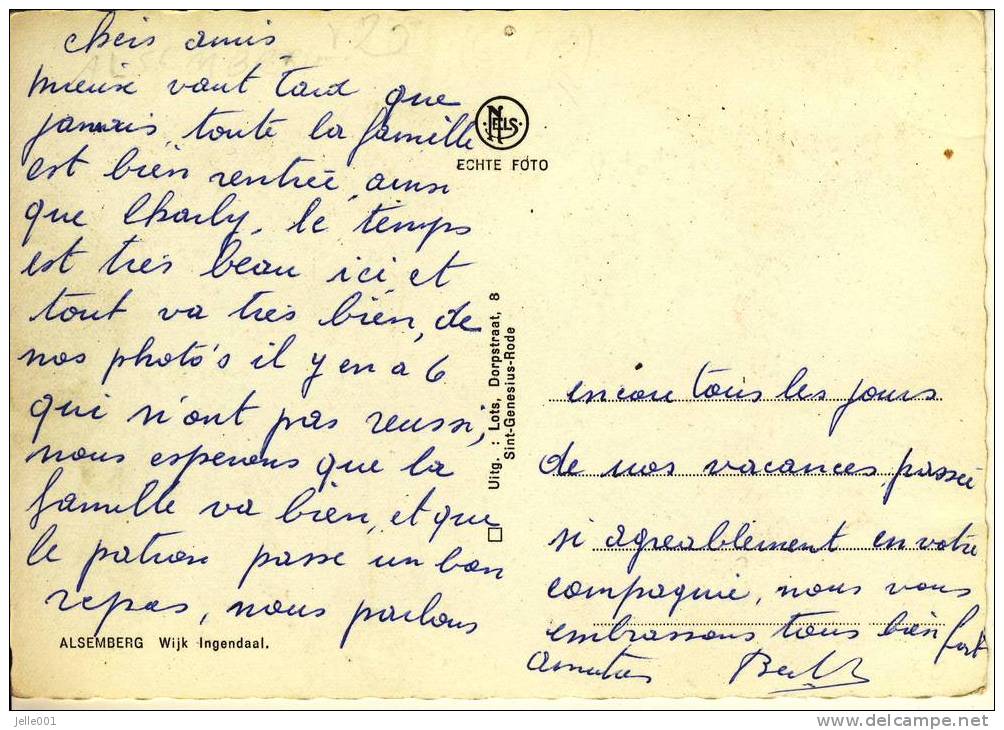 chers amis,
mieux vaut tard que
jamais, toute la famille
est bien rentrée, ainsi
que Charly, le temps
est très beau ici, et
tout va très bien, de
nos photo's il y en a 6
qui n'ont pas reussi,
nous esperons que la
famille va bien, et que
le patron passe un bon
repas, nous parlons
ALSEMBERG Wijk Ingendaal.
NELS
ECHTE FOTO
Uitg. : Lots, Dorpstraat, 8
Sint-Genesius-Rode
encore tous les jours
de nos vacances, passée
si agreablement en votre
compagnie, nous vous
embrassons tous bien fort
Amitiés
jelle001
delcampe.net